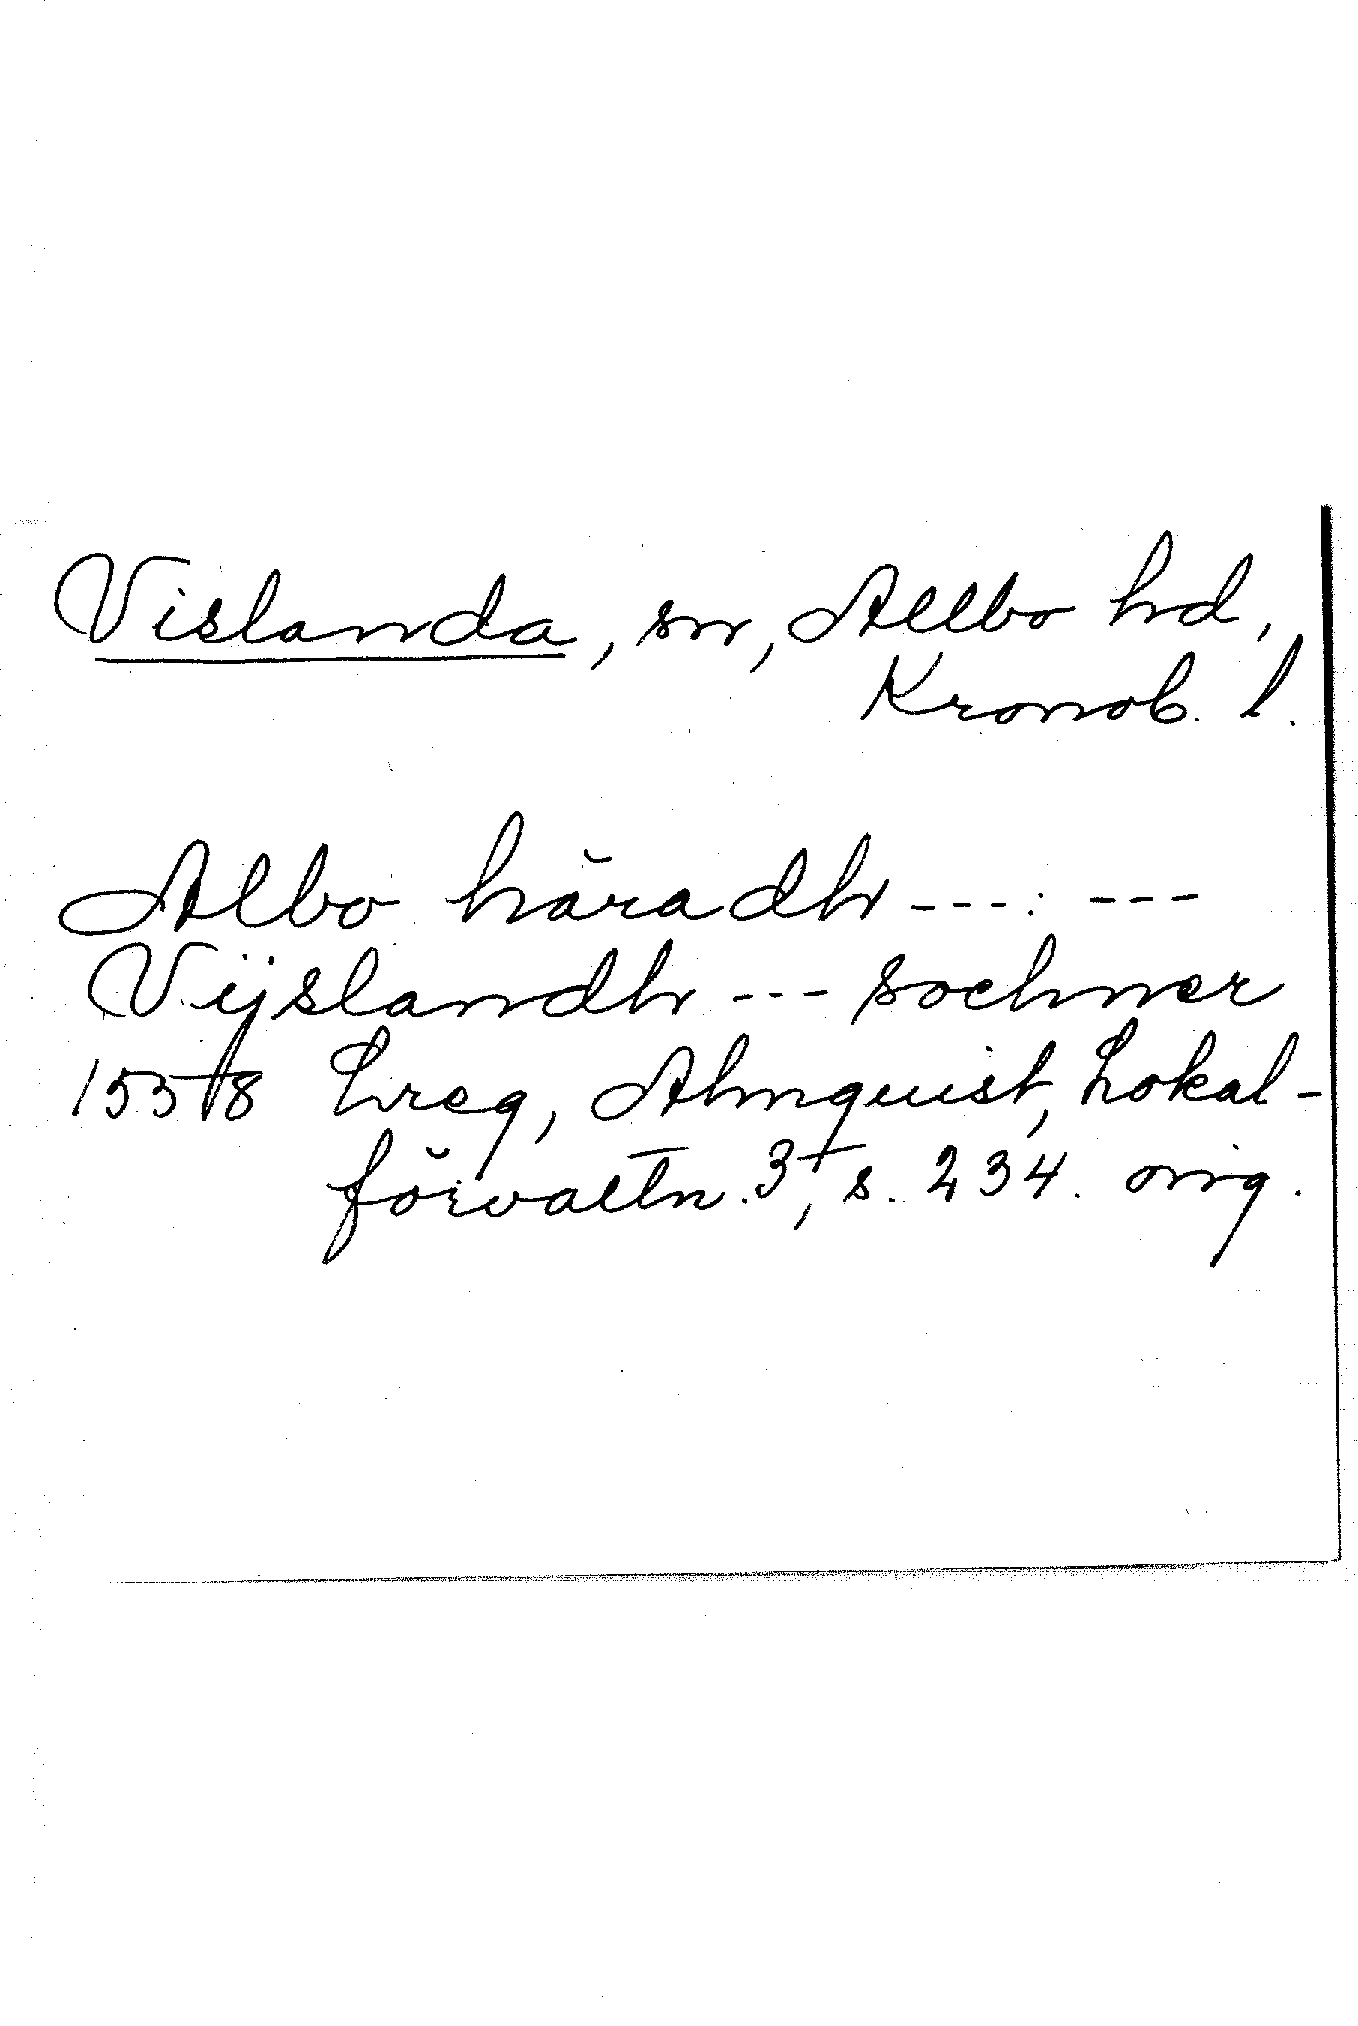 Vislanda, sn, Allbo hd,
Kronob. l.
Albo häradh ---:---
Vijslandh --- sochner
1558 Lreg, Almquist, Lokal-
förvaltn. 3, s. 234. orig.